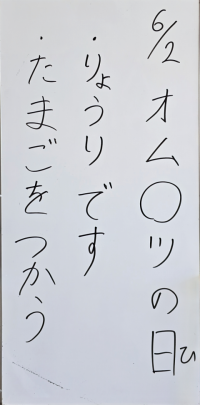 6/2 オム〇ツの日ひ
・りょうりです
・たまごをつかう